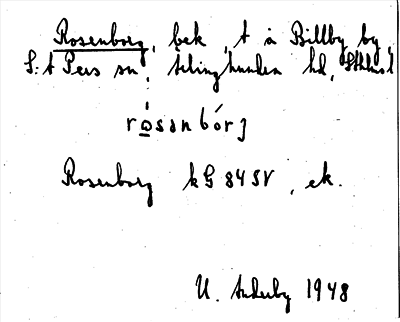 Rosenborg, bek, t å Billby by,
S:t Pers sn, Seminghunden hd, Sthlms l
rosanbórj
Rosenborg kG 84 SV, ek.
U. Anderby 1948